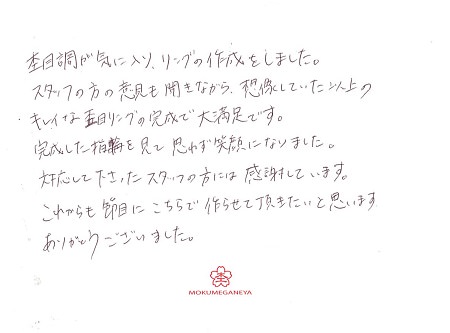 杢目調が気に入り、リングの作成をしました。
スタッフの方の意見も聞きながら、想像していた以上の
キレイな杢目リングの完成で大満足です。
完成した指輪を見て思わず笑顔になりました。
対応して下さったスタッフの方には感謝しています。
これからも節目にこちらで作らせて頂きたいと思います
ありがとうございました。
MOKUMEGANEYA